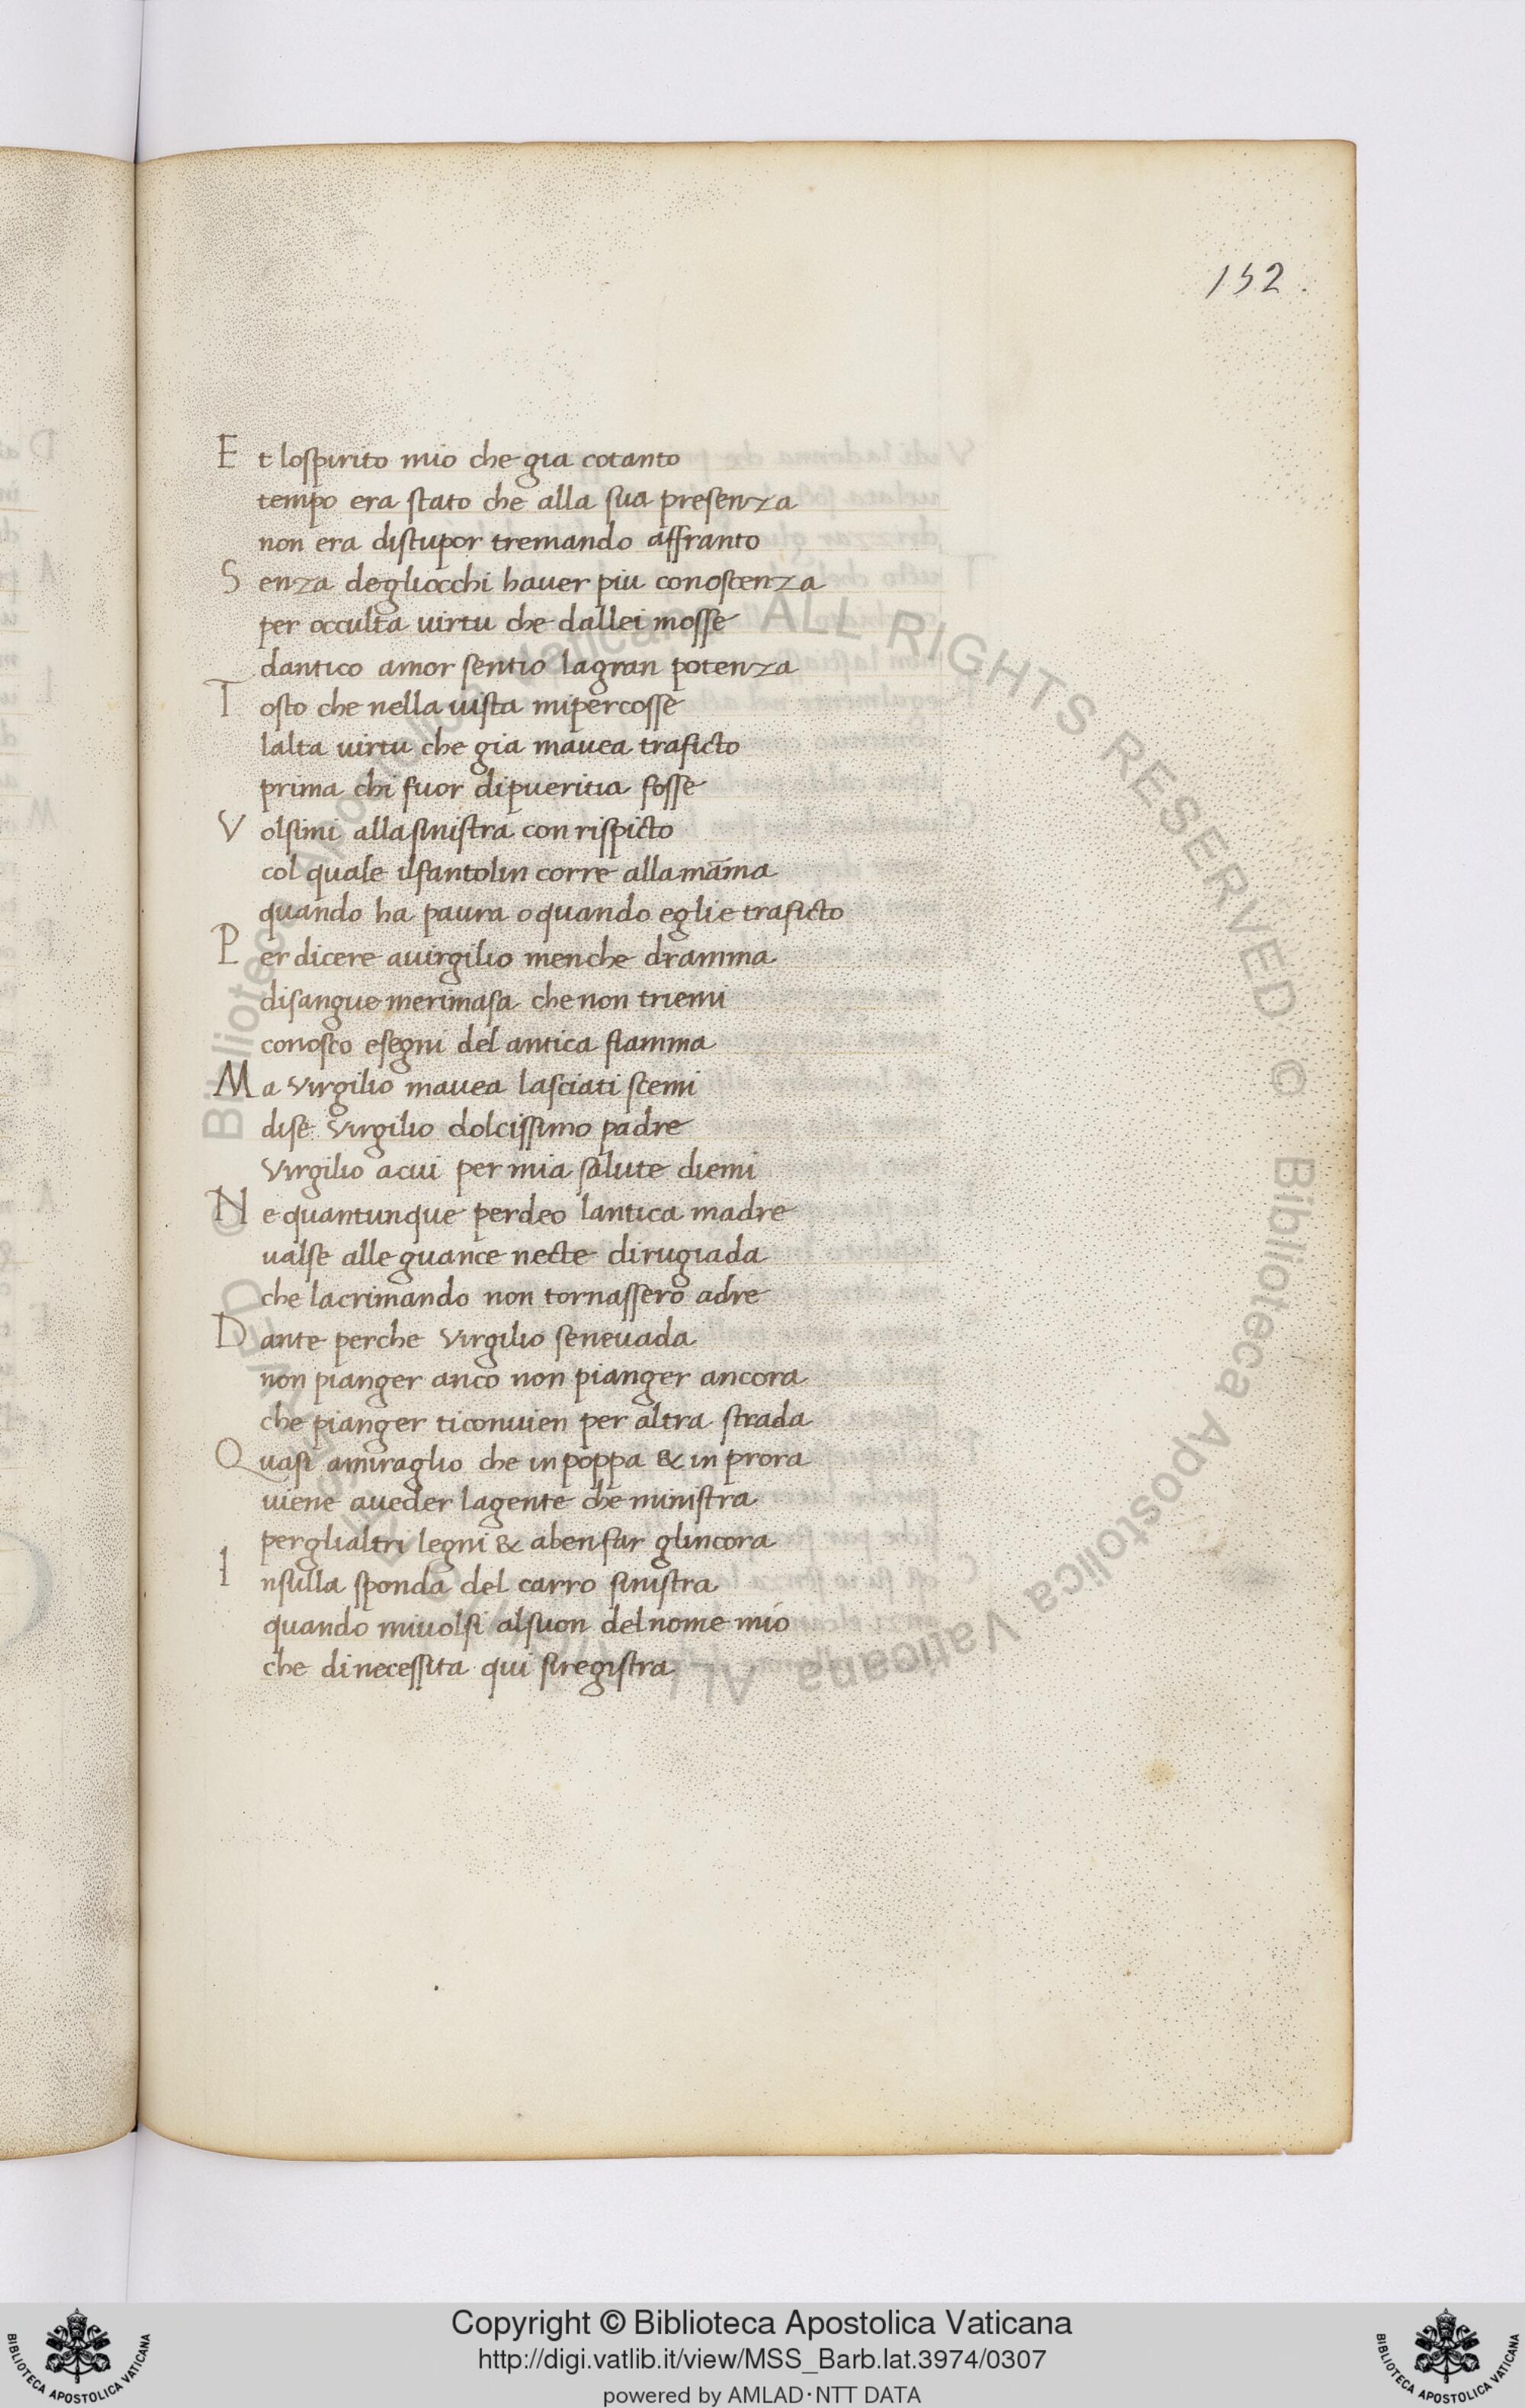 152.
Et loſpirito mio che gia cotanto
tempo era ſtato che alla ſua preſenza
non era diſtupor tremando affranto
Senza degliocchi haver piu conoſcenza
per occulta uirtu che dallei moſſe
dantico amor ſentio lagran potenza
Toſto che nella uiſta mipercoſſe
lalta uirtu che gia mauea traficto
prima chi fuor dipueritia foſſe
Volſimi allaſiniſtra con riſpicto
col quale ilfantolin corre allamāma
quando ha paura o quando eglie traficto
Per dicere auirgilio menche dramma
diſangue merimaſa che non triemi
conoſco eſegni del antica fiamma
Ma Virgilio mauea laſciati ſcemi
diſe Virgilio dolciſſimo padre
Virgilio acui per mia ſalute diemi
Ne quantunque perdeo lantica madre
ualſe alle guance necte dirugiada
che lacrimando non tornaſſero adre
Dante perche Virgilio ſeneuada
non pianger anco non pianger ancora
che pianger ticonuien per altra ſtrada
Quaſi amiraglio che in poppa & in prora
uiene aueder lagente che miniſtra
perglialtri legni & abenfar glincora
Inſulla ſponda del carro ſiniſtra
quando miuolſi alſuon delnome mio
che dineceſſita qui ſiregiſtra
© Biblioteca Apostolica Vaticana ALL RIGHTS RESERVED © Biblioteca Apostolica Vaticana ALL RIGHTS RESERVED
Copyright © Biblioteca Apostolica Vaticana
http://digi.vatlib.it/view/MSS_Barb.lat.3974/0307
powered by AMLAD・NTT DATA
BIBLIOTECA APOSTOLICA VATICANA
BIBLIOTECA APOSTOLICA VATICANA